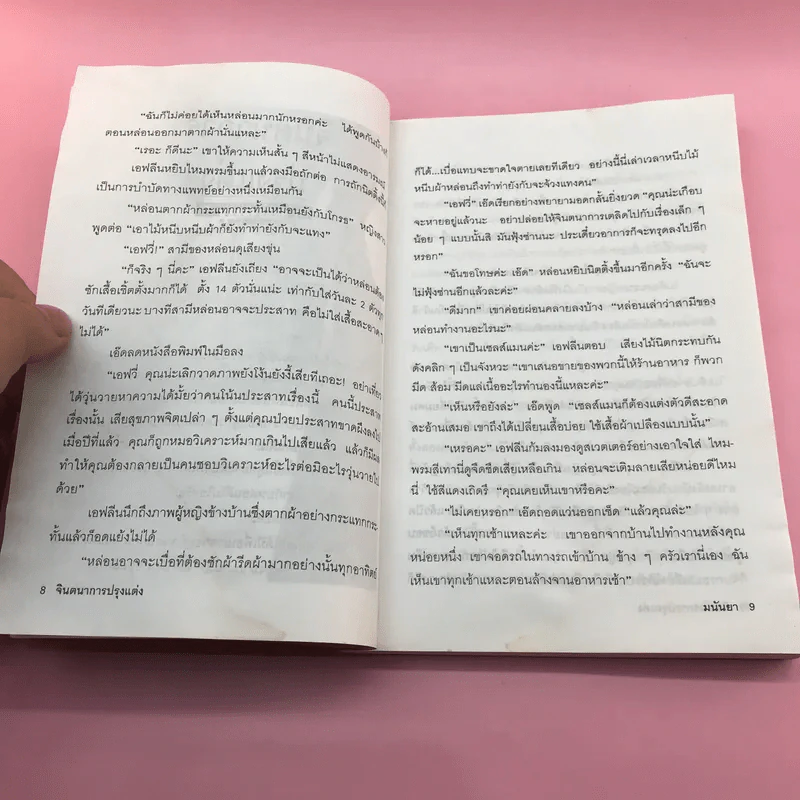 “ฉันก็ไม่ค่อยได้เห็นหล่อนมากนักหรอกค่ะ ได้พูดกันบ้างก็
ตอนหล่อนออกมาตากผ้านั่นแหละ”
“เรอะ ก็ดีนะ” เขาให้ความเห็นสั้น ๆ สีหน้าไม่แสดงอารมณ์
เอฟลีนหยิบไหมพรมขึ้นมาแล้วลงมือถักต่อ การถักนิตติ้งนี้ก็
เป็นการบำบัดทางแพทย์อย่างหนึ่งเหมือนกัน
“หล่อนตากผ้ากระแทกกระทั้นเหมือนยังกับโกรธ” หญิงสาว
พูดต่อ “เอาไม้หนีบหนีบผ้าก็ยังทำท่ายังกับจะแทง”
“เอฟวี่!” สามีของหล่อนดุเสียงขุ่น
“ก็จริง ๆ นี่คะ” เอฟลีนยังเถียง “อาจจะเป็นได้ว่าหล่อนต้อง
ซักเสื้อเชิ้ตตั้งมากก็ได้ ตั้ง 14 ตัวนั่นแน่ะ เท่ากับใส่วันละ 2 ตัวทุก
วันทีเดียวนะ บางทีสามีหล่อนอาจจะประสาท คือไม่ใส่เสื้อสะอาด ๆ
ไม่ได้”
เอ๊ดลดหนังสือพิมพ์ในมือลง
“เอฟวี่ คุณน่ะเลิกวาดภาพยังโง้นยังงี้เสียทีเถอะ! อย่าเที่ยว
ได้วุ่นวายหาความได้มั้ยว่าคนโน้นประสาทเรื่องนี้ คนนี้ประสาท
เรื่องนั้น เสียสุขภาพจิตเปล่า ๆ ตั้งแต่คุณป่วยประสาทขาดผึงลงไป
เมื่อปีที่แล้ว คุณก็ถูกหมอวิเคราะห์มากเกินไปเสียแล้ว แล้วก็มีผล
ทำให้คุณต้องกลายเป็นคนชอบวิเคราะห์อะไรต่อมิอะไรวุ่นวายไป
ด้วย”
เอฟลีนนึกถึงภาพผู้หญิงข้างบ้านซึ่งตากผ้าอย่างกระแทกกระ
ทั้นแล้วก็อดแย้งไม่ได้
“หล่อนอาจจะเบื่อที่ต้องซักผ้ารีดผ้ามากอย่างนั้นทุกอาทิตย์
8 จินตนาการปรุงแต่ง
ก็ได้...เบื่อแทบจะขาดใจตายเลยทีเดียว อย่างนี้นี่เล่าเวลาหนีบไม้
หนีบผ้าหล่อนถึงทำท่ายังกับจะจ้วงแทงคน”
“เอฟวี่” เอ๊ดเรียกอย่างพยายามอดกลั้นยิ่งยวด “คุณน่ะเกือบ
จะหายอยู่แล้วนะ อย่าปล่อยให้จินตนาการเตลิดไปกับเรื่องเล็ก ๆ
น้อย ๆ แบบนั้นสิ มันฟุ้งซ่านนะ ประเดี๋ยวอาการก็จะทรุดลงไปอีก
หรอก”
“ฉันขอโทษค่ะ เอ๊ด” หล่อนหยิบนิตติ้งขึ้นมาอีกครั้ง “ฉันจะ
ไม่ฟุ้งซ่านอีกแล้วล่ะค่ะ”
“ดีมาก” เขาค่อยผ่อนคลายลงบ้าง “หล่อนเล่าว่าสามีของ
หล่อนทำงานอะไรนะ”
“เขาเป็นเซลส์แมนค่ะ” เอฟลีนตอบ เสียงไม้นิตกระทบกัน
ดังคลิก ๆ เป็นจังหวะ “เขาเสนอขายของพวกนี้ให้ร้านอาหาร ก็พวก
มีด ส้อม มีดแล่เนื้ออะไรทำนองนี้แหละค่ะ”
“เห็นหรือยังล่ะ” เอ๊ดพูด “เซลส์แมนก็ต้องแต่งตัวดีสะอาด
สะอ้านเสมอ เขาถึงได้เปลี่ยนเสื้อบ่อย ใช้เสื้อผ้าเปลืองแบบนั้น”
“เหรอคะ” เอฟลีนก้มลงมองดูสเวตเตอร์อย่างเอาใจใส่ ไหม-
พรมสีเทานี่ดูจืดชืดเสียเหลือเกิน หล่อนจะเติมลายเสียหน่อยดีไหม
นี่ ใช้สีแดงเถิดรึ “คุณเคยเห็นเขาหรือคะ”
“ไม่เคยหรอก” เอ๊ดถอดแว่นออกเช็ด “แล้วคุณล่ะ”
“เห็นทุกเช้าแหละค่ะ เขาออกจากบ้านไปทำงานหลังคุณ
หน่อยหนึ่ง เขาจอดรถในทางรถเข้าบ้าน ข้าง ๆ ครัวเรานี่เอง ฉัน
เห็นเขาทุกเช้าแหละตอนล้างจานอาหารเช้า”
มนันยา 9